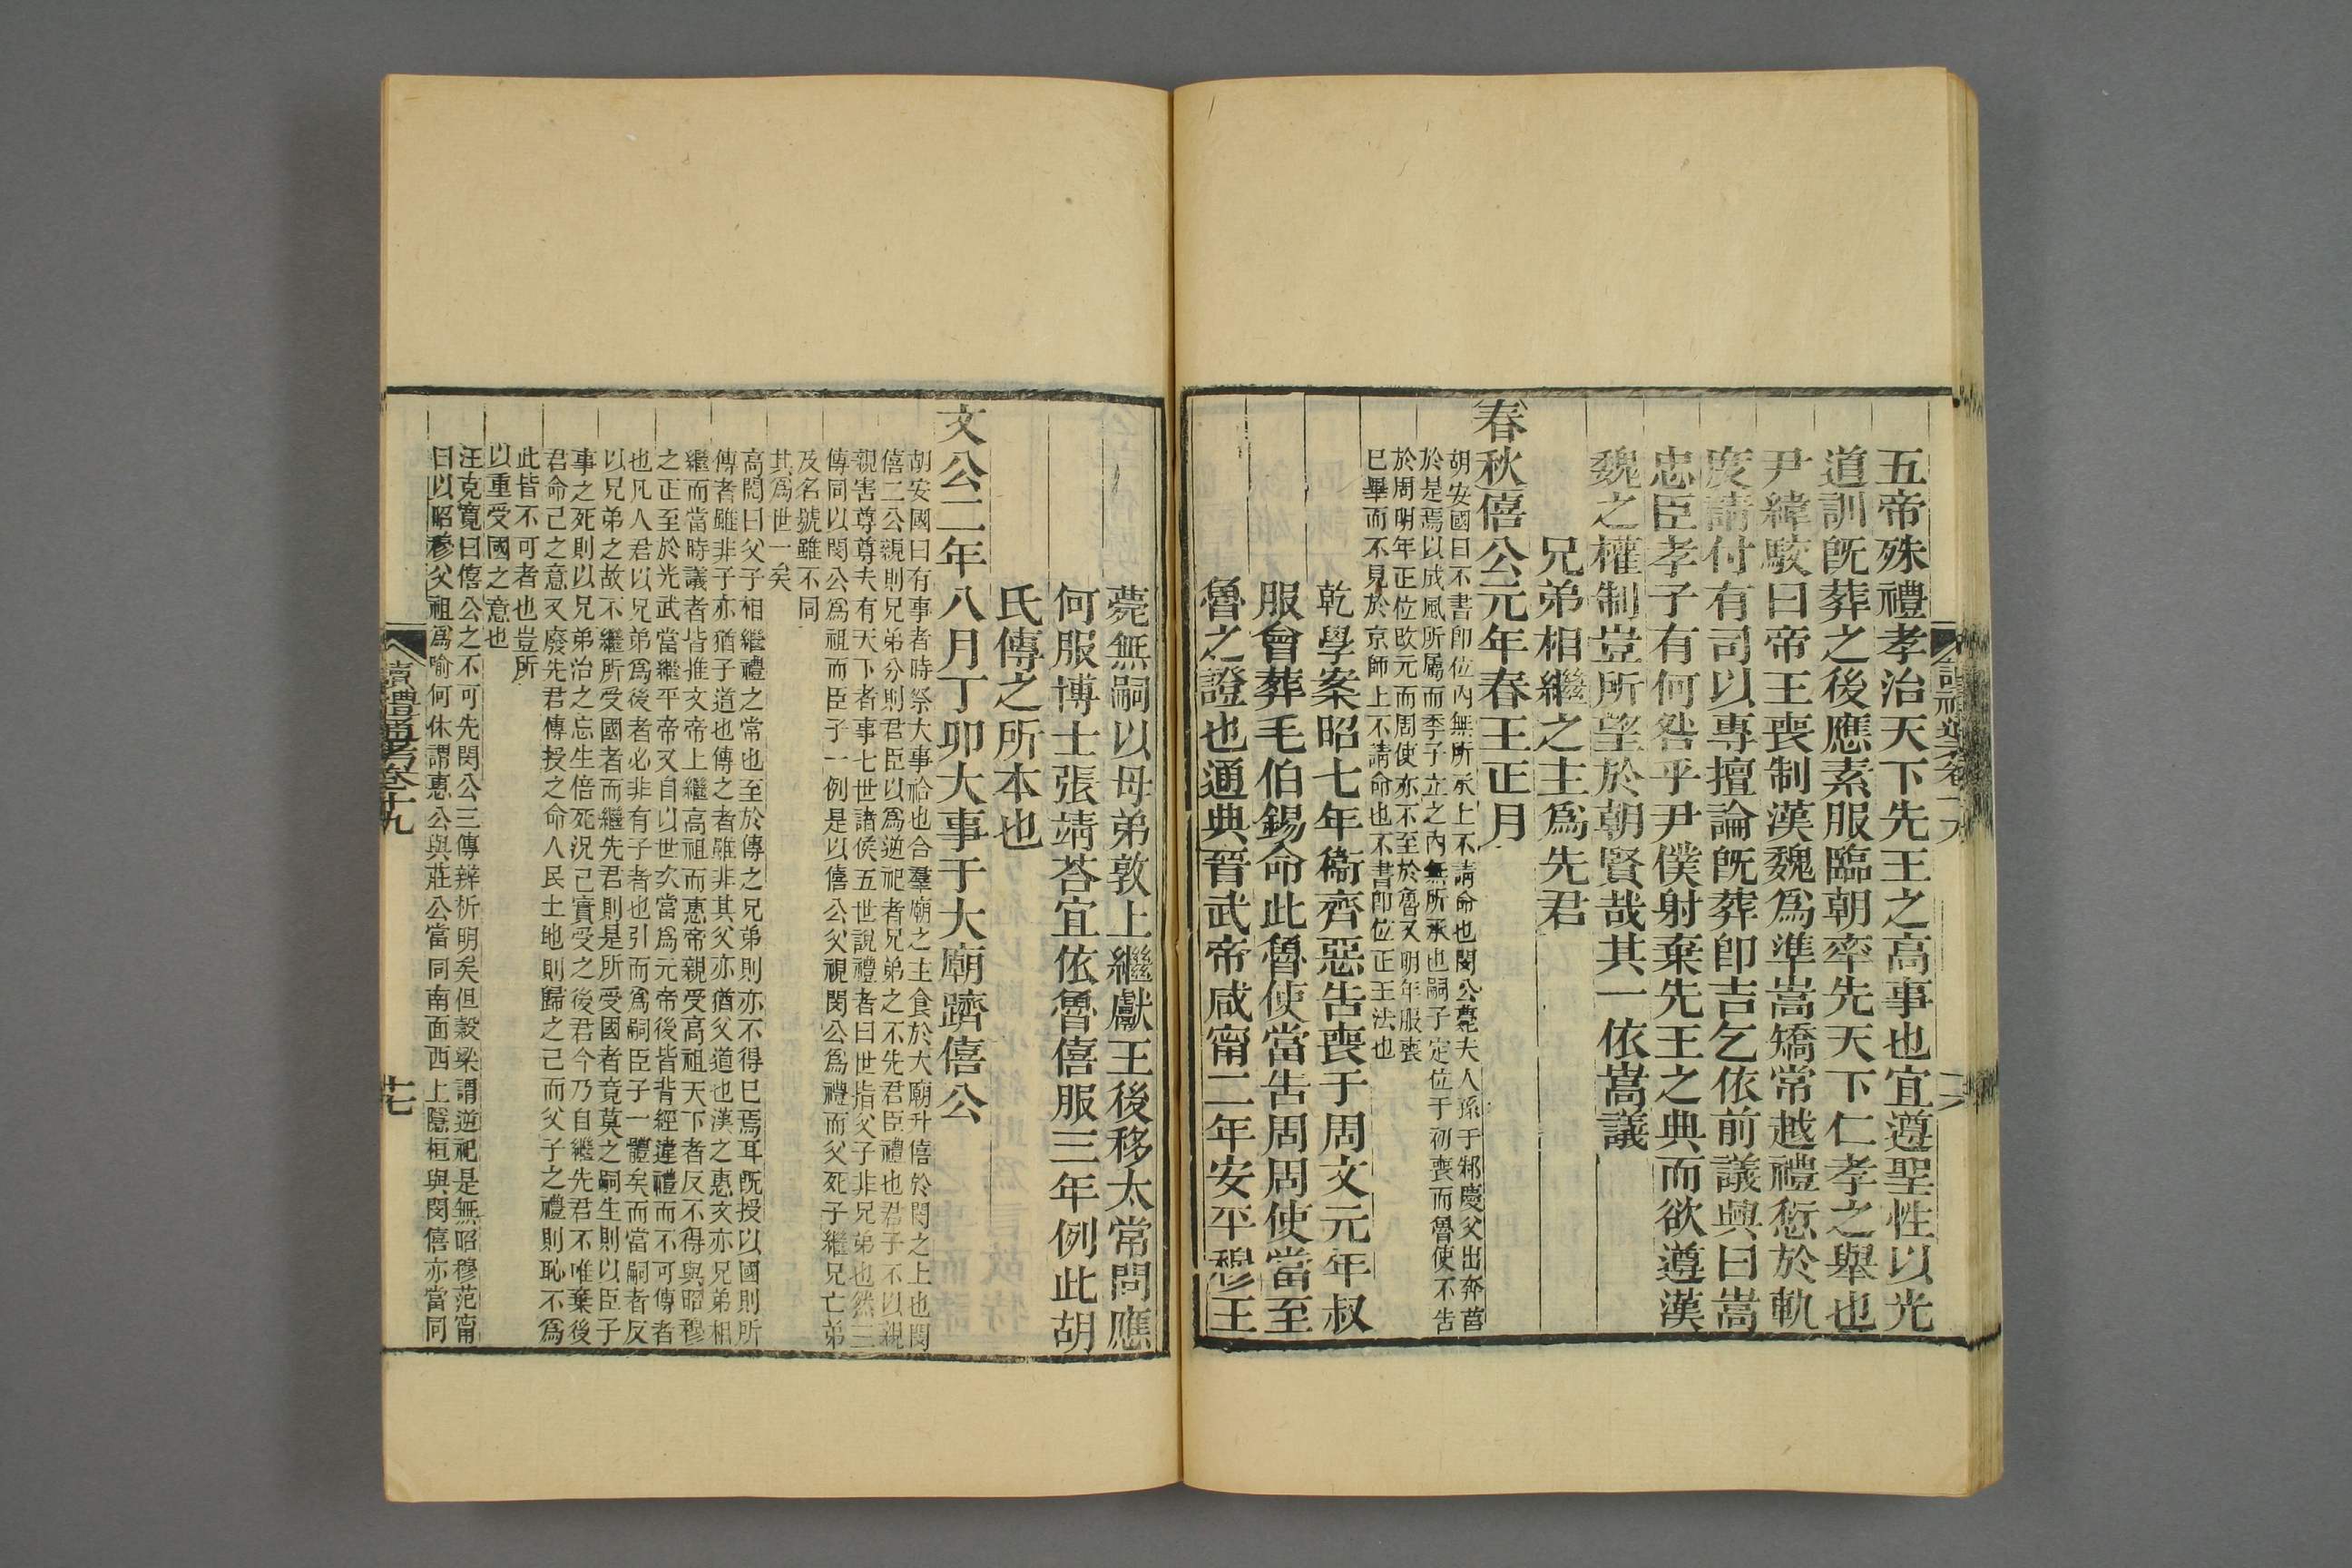 五帝殊禮孝治天下先王之高事也宜遵聖性以光
道訓旣葬之後應素服臨朝率先天下仁孝之舉也
尹緯駮曰帝王喪制漢魏爲準嵩矯常越禮愆於軌
度請付有司以專擅論旣葬卽吉乞依前議興曰嵩
忠臣孝子有何咎乎尹僕射棄先王之典而欲遵漢
魏之權制豈所望於朝賢哉其一依嵩議
兄弟相繼之主爲先君
春秋僖公元年春王正月
胡安國曰不書卽位內無所承上不請命也閔公薨夫人孫于邾慶父出奔莒
於是焉以成風所屬而季子立之內無所承也嗣子定位于初喪而魯使不告
於周明年正位改元而周使亦不至於魯又明年服喪
已畢而不見於京師上不請命也不書卽位正王法也
乾學案昭七年衞齊惡告喪于周文元年叔
服會葬毛伯錫命此魯使當告周周使當至
魯之證也通典晉武帝咸甯二年安平穆王
薨無嗣以母弟敦上繼獻王後移太常問應
何服博士張靖荅宜依魯僖服三年例此胡
氏傳之所本也
文公二年八月丁卯大事于大廟躋僖公
胡安國曰有事者時祭大事祫也合羣廟之主食於大廟升僖於閔之上也閔
僖二公親則兄弟分則君臣以爲逆祀者兄弟之不先君臣禮也君子不以親
親害尊尊夫有天下者事七世諸侯五世說禮者曰世指父子非兄弟也然三
傳同以閔公爲祖而臣子一例是以僖公父視閔公爲禮而父死子繼兄亡弟
及名號雖不同
其爲世一矣
高閌曰父子相繼禮之常也至於傳之兄弟則亦不得已焉耳旣授以國則所
傳者雖非子亦猶子道也傳之者雖非其父亦猶父道也漢之惠文亦兄弟相
繼而當時議者皆推文帝上繼高祖而惠帝親受高祖天下者反不得與昭穆
之正至於光武當繼平帝又自以世次當爲元帝後皆背經違禮而不可傳者
也凡人君以兄弟爲後者必非有子者也引而爲嗣臣子一體矣而當嗣者反
以兄弟之故不繼所受國者而繼先君則是所受國者竟莫之嗣生則以臣子
事之死則以兄弟治之忘生倍死況己實受之後君今乃自繼先君不唯棄後
君命己之意又廢先君傳授之命人民土地則歸之己而父子之禮則恥不爲
此皆不可者也豈所
以重受國之意也
汪克寬曰僖公之不可先閔公三傳辨析明矣但穀梁謂逆祀是無昭穆范甯
曰以昭穆父祖爲喻何休謂惠公與莊公當同南面西上隱桓與閔僖亦當同
讀禮通考卷十九
十七